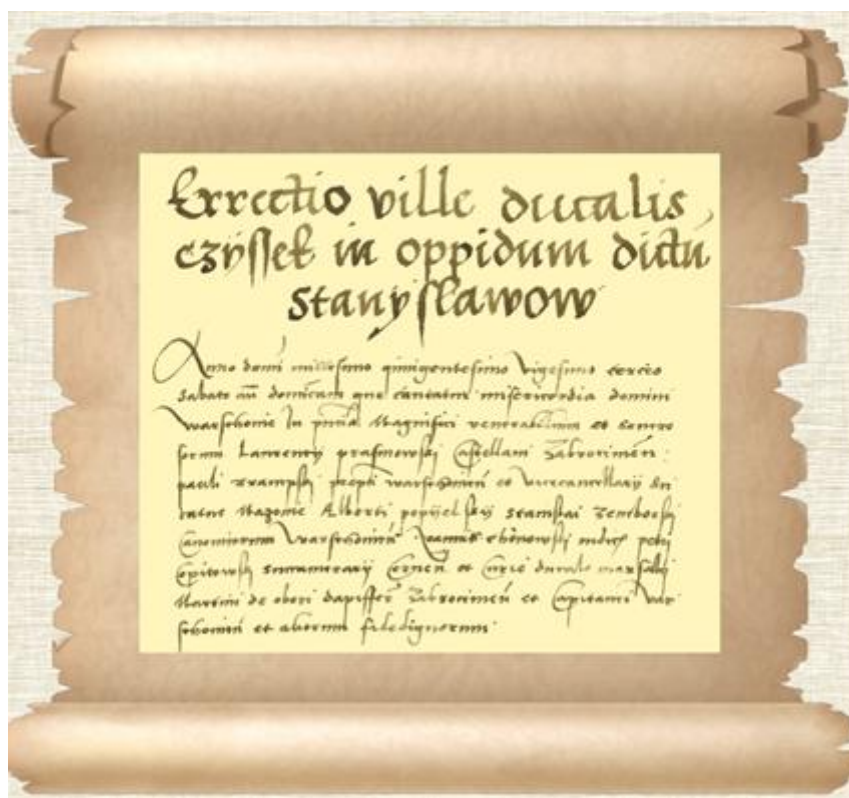 Errectio ville ducalis
czÿssek in oppidum dictū
Stanyslawow
Anno domi millesimo quingentesimo vigesimo tercio
Sabato añ domīcam que cantatur misericordia domini
Warschouie In pñcia Magnifici venerabilium et Genero
sorum Laurency prasmowskj Castellani Zabrocimeñ
pauli prepti warschouieñ et vicecancellarij Du
catus Mazouie Alberti Stanislai
Canonicorum Warschouieñ petrj
Succamerarij Cerneñ et Curie ducalis marsalkj
Martini de dapifferi Zabrocimeñ et Capitanei War
schouieñ et aliorum fidedignorum